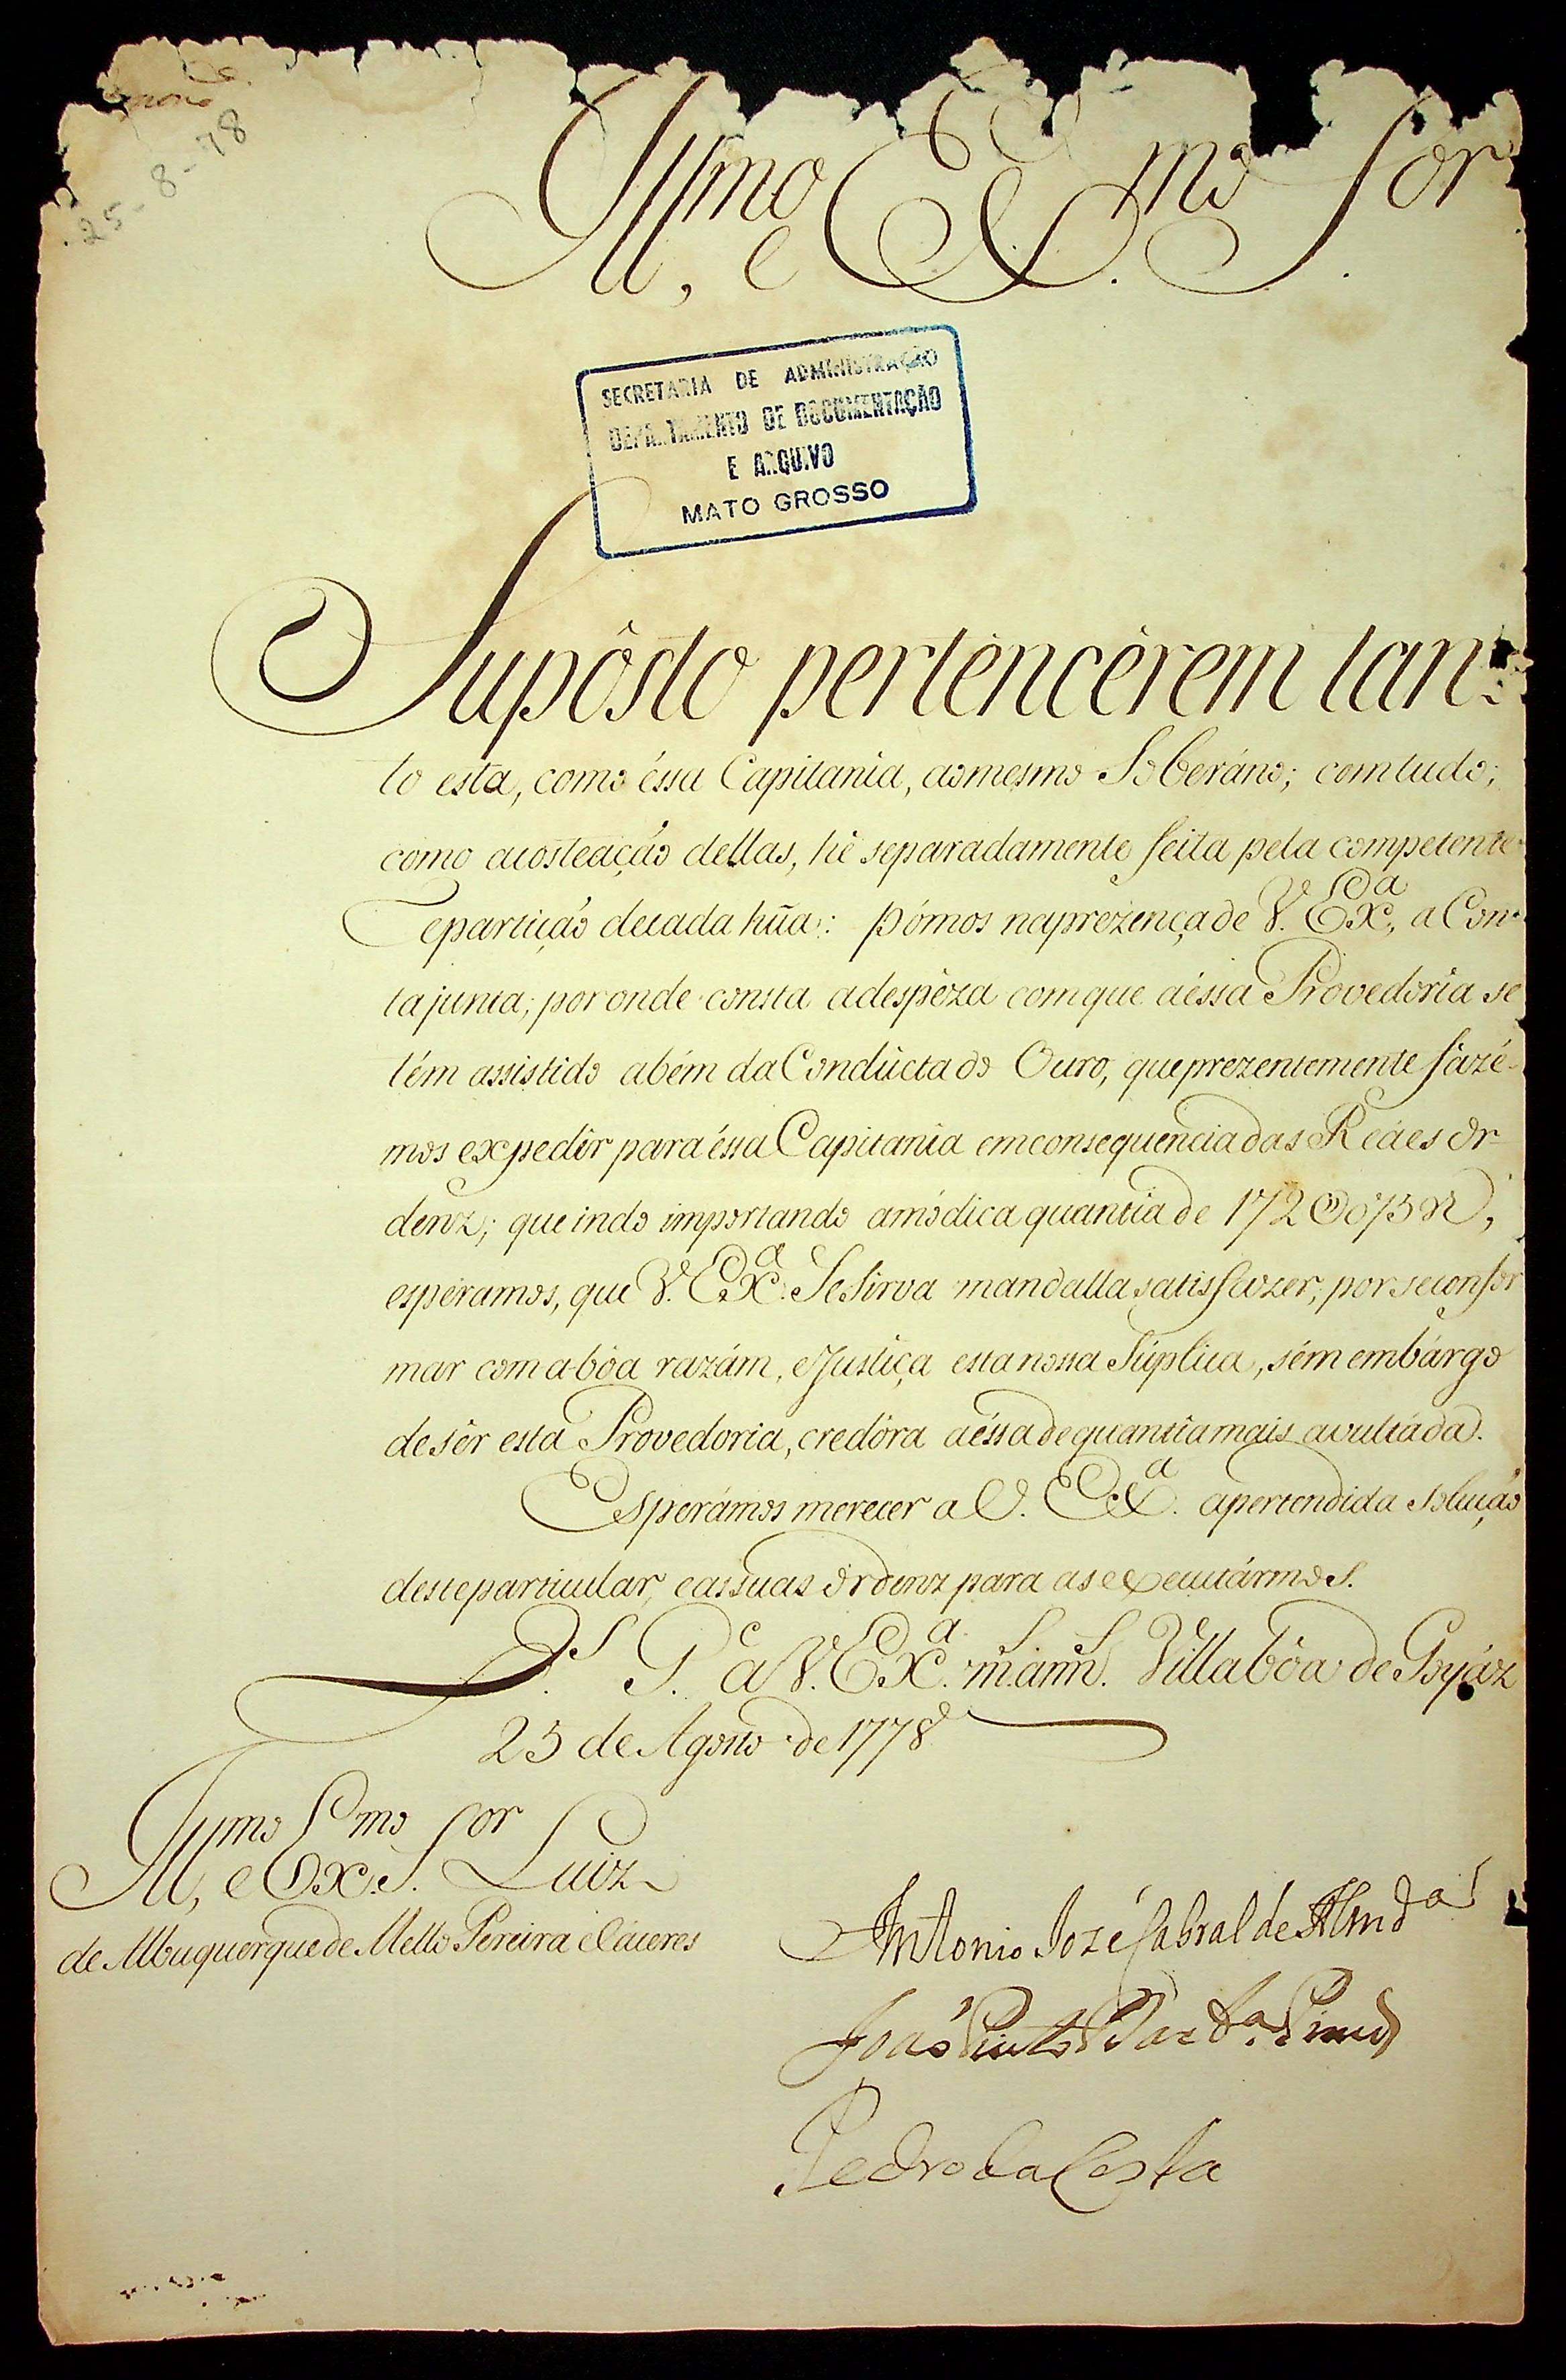 25-8-78
Ill.mo, e Ex.mo S.or
SECRETARIA DE ADMINISTRAÇÃO
DEPARTAMENTO DE DOCUMENTAÇÃO
E ARQUIVO
MATO GROSSO
Supôsto pertencêrem tan-
to esta, como éssa Capitania, ao mesmo Soberáno; com tudo;
como a costeaçaõ dellas, hé separadamente feita pela competente
Repartiçaõ de cada hũa: pômos na prezença de V. Ex.a, a Con-
ta junta; por onde consta a despêza com que a éssa Provedoria se
tém assistido a bém da Condûcta do Ouro, que prezentemente fazê-
mos expedîr para éssa Capitanîa em consequencia das Reáes Or-
denz; que indo importando a módica quantia de 172@073 rs,
espéramos, que V. Ex.a Se Sirva mandalla satisfazer; por se confor
mar com a bôa razám, e Justiça esta nossa Súplica, sém embárgo
de sêr esta Provedoria, credôra a éssa de quantîa mais avultáda.
Esperámos merecer a V. Ex.a a pertendida soluçaõ
deste particular, e as suas Ordenz para as executármos.
D.s G.e a V. Ex.a m.s ann.s Villa bôa de Goyáz
25 de Agosto de 1778
Ill.mo, e Ex.mo S.or Luiz
de Albuquerque de Mello Pereira e Cáceres
Antonio Jozé Cabral de Almd.a
Joaõ Pinto Barb.a Pim.el
Pedro da Costa